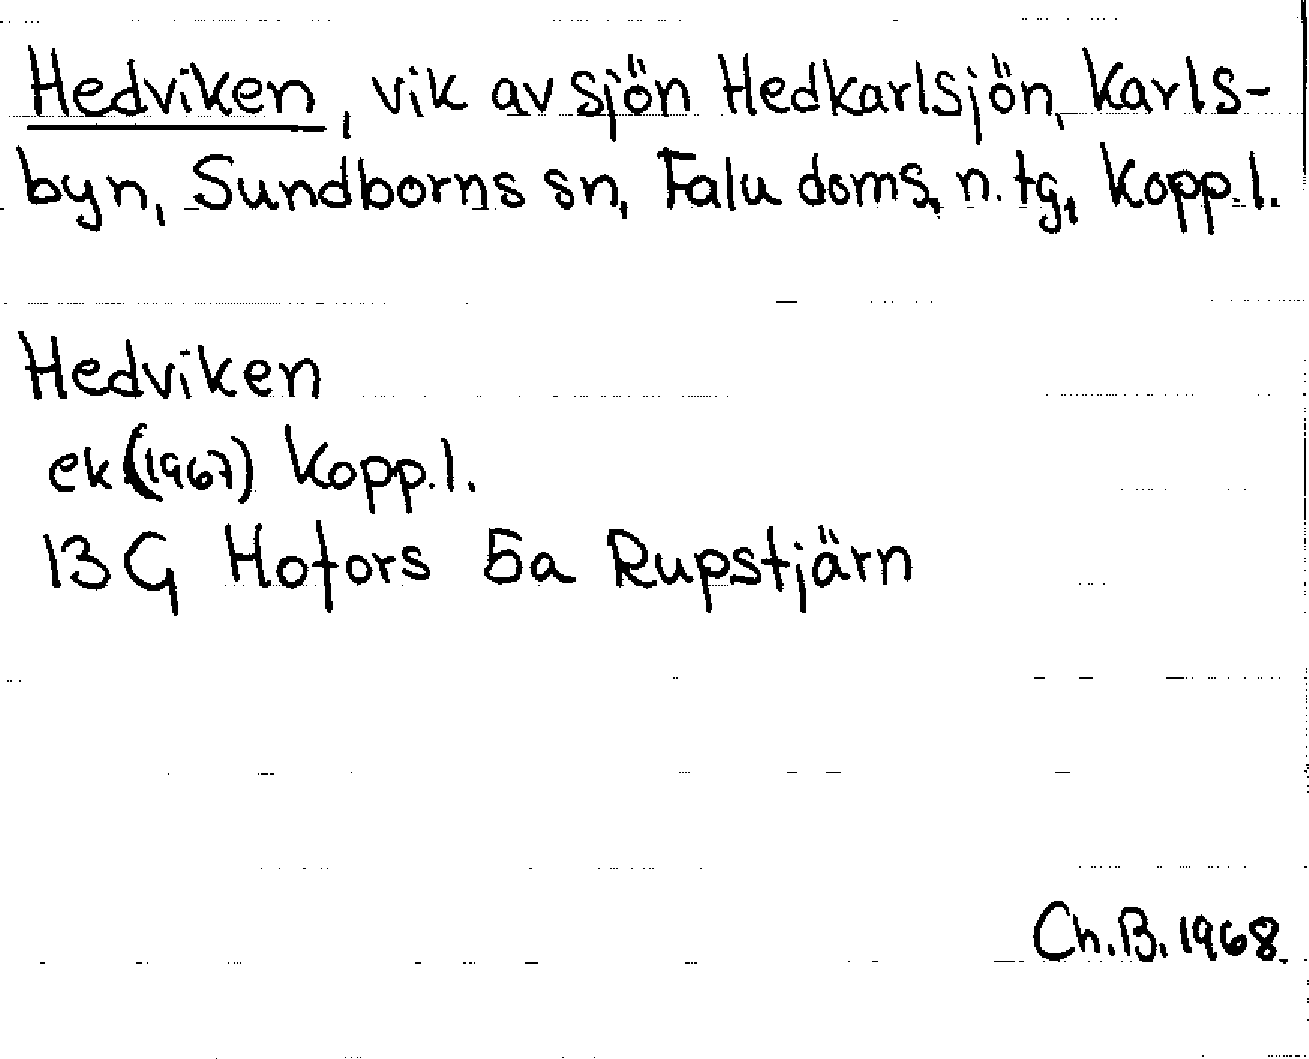 Hedviken, vik av sjön Hedkarlsjön, Karls-
byn, Sundborns sn, Falu doms, n. tg, Kopp.l.
Hedviken
ek (1967) Kopp.l.
13 G Hofors 5a Rupstjärn
Ch.B. 1968